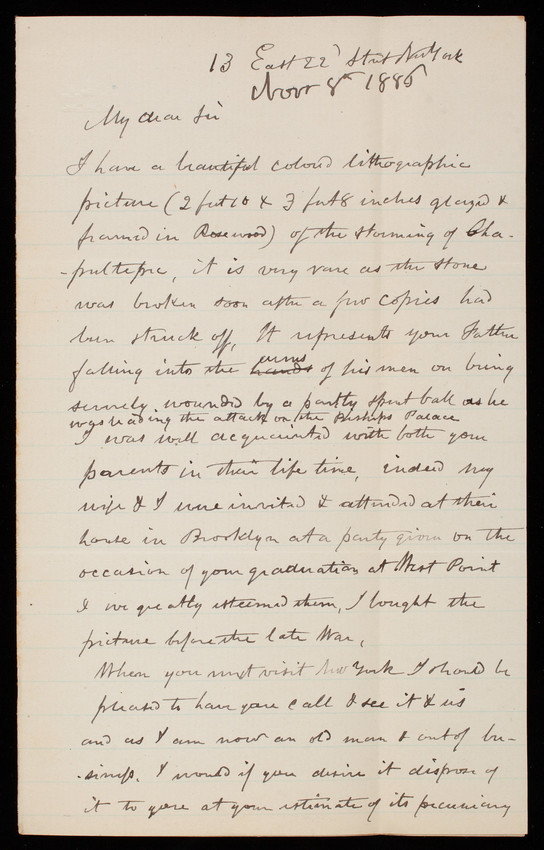 13 East 22d Street New York
Novr 8th 1885
My dear Sir
I have a beautiful colored lithographic
picture (2 feet 10 & 3 feet 8 inches glazed &
framed in Rosewood) of the storming of Cha-
-pultepec, it is very rare as the stone
was broken soon after a few copies had
been struck off, It represents your Father
falling into the hands arms of his men on being
severely wounded by a partly spent ball as he
was leading the attack on the Bishops Palace
I was well acquainted with both your
parents in their life time, indeed my
wife & I were invited & attended at their
house in Brooklyn at a party given on the
occasion of your graduation at West Point
& we greatly esteemed them, I bought the
picture before the late War,
When you next visit New York I should be
pleased to have you call & see it & us
and as I am now an old man & out of bu-
-siness. I would if you desire it dispose of
it to you at your estimate of its pecuniary